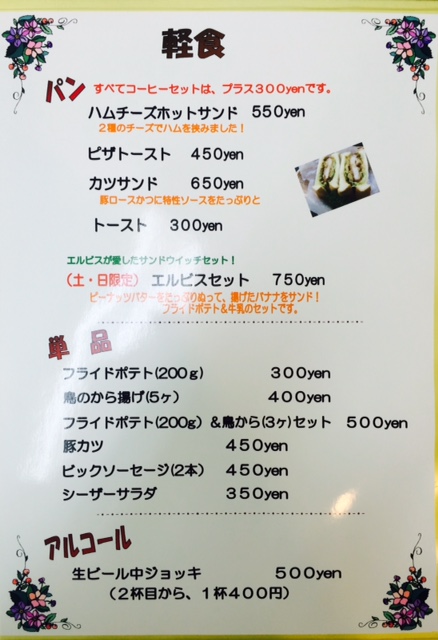 軽食
パン すべてコーヒーセットは、プラス300yenです。
ハムチーズホットサンド 550yen
2種のチーズでハムを挟みました!
ピザトースト 450yen
カツサンド 650yen
豚ロースかつに特性ソースをたっぷりと
トースト 300yen
エルビスが愛したサンドウイッチセット!
(土・日限定) エルビスセット 750yen
ピーナッツバターをたっぷりぬって、揚げたバナナをサンド!
フライドポテト&牛乳のセットです。
単品
フライドポテト(200g) 300yen
鳥のから揚げ(5ヶ) 400yen
フライドポテト(200g)&鳥から(3ヶ)セット 500yen
豚カツ 450yen
ビックソーセージ(2本) 450yen
シーザーサラダ 350yen
アルコール
生ビール中ジョッキ 500yen
(2杯目から、1杯400円)